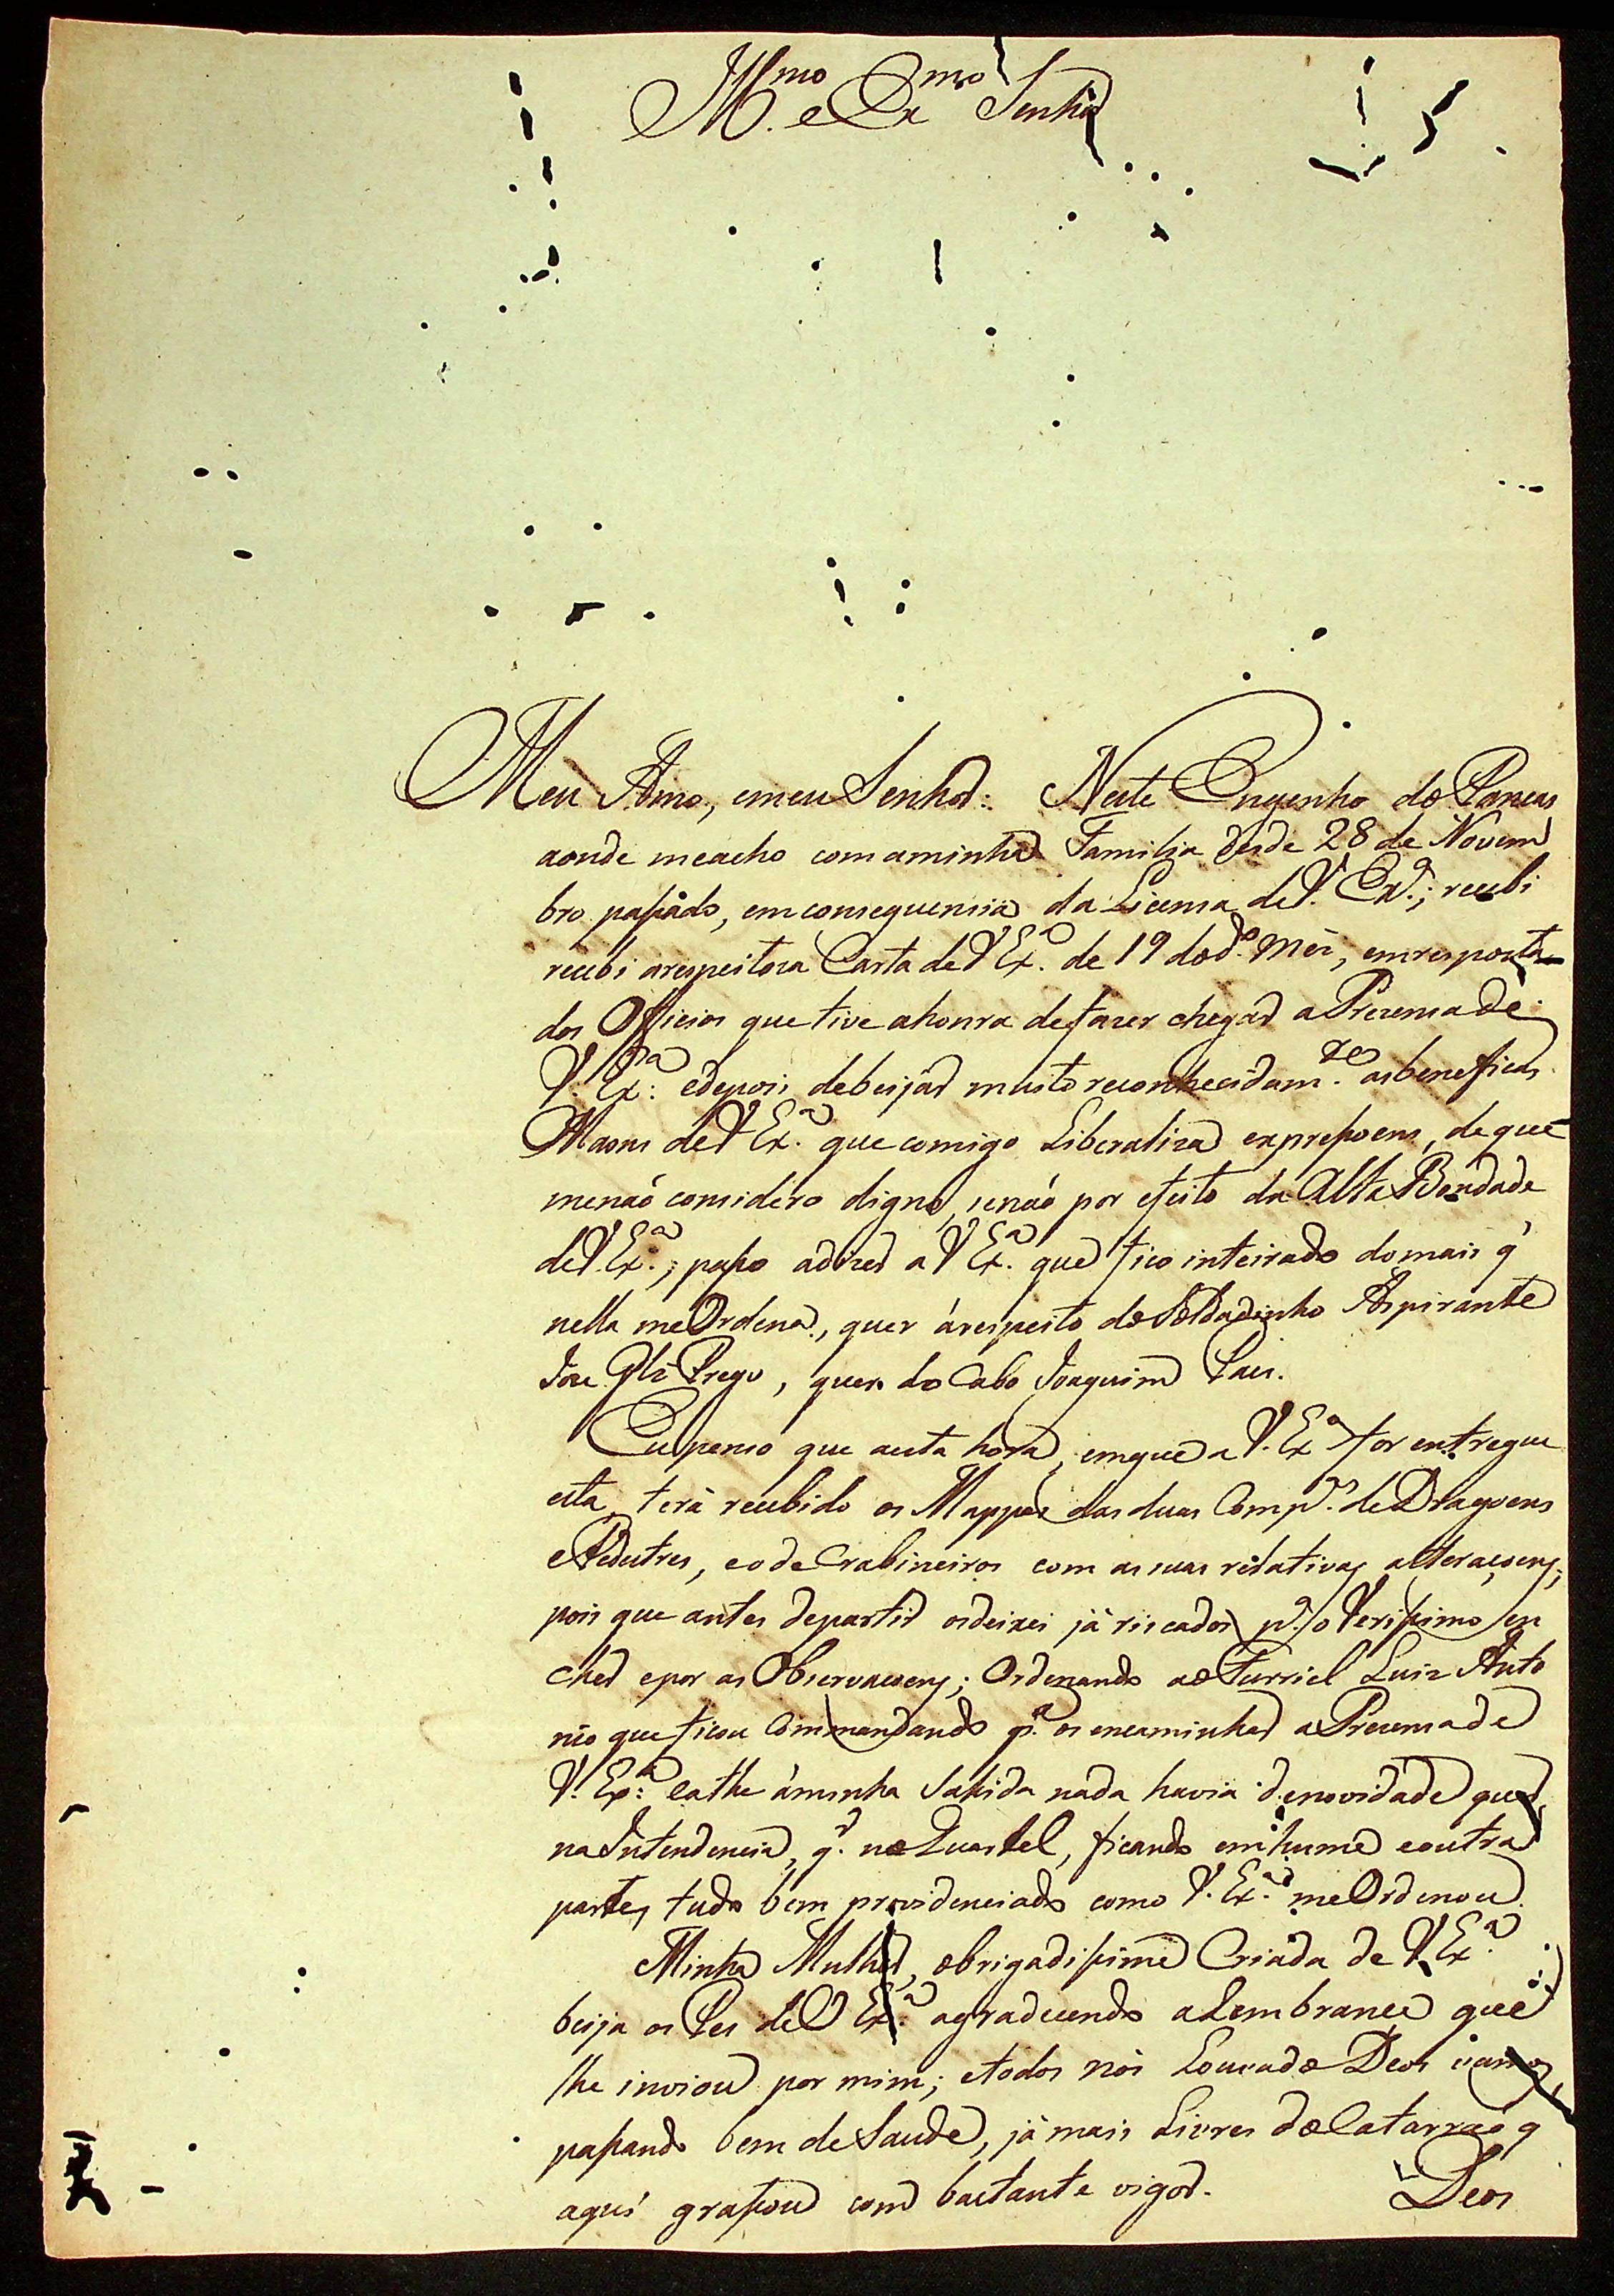 Ill.mo e Ex.mo Senhor
Meu Amo, emeu Senhor: Neste Engenho do Pancas
aonde meacho comaminha Familia desde 28 de Novem
bro passado, emconsequensia da Licensa deV. Ex.ª; recebi
recebi arespeitoza Carta deV Ex.ª de 19 dod.º Mês, emresposta
dos Officios quetive ahonra defazer chegar aPrezensa de
V. Ex.ª: edepois debeijar muito reconhecidam.te asbeneficas
Maons deV Ex.ª que comigo Liberaliza expressoens, de que
menaó considéro digno, senaó por efeito da Alta Bondade
deV. Ex.ª; passo adizer aV Ex.ª que fico inteirado domais q'
nella meOrdena, quer árespeito do Soldadinho Aspirante
Joze Glz Prego, quer do Cabo Joaquim Paes.
Eu penso que aesta hora, emque a V. Ex.ª for entregue
esta, terá recebido os Mappas dasduas Comp.as deDragoens
ePedestres, eode Crabineiros com as suas relativas alteraçoens;
pois que antes departir osdeixei já riscados p.ª oVerissimo en
cher epor as Observasoens; Ordenando aoFurriel Luiz Anto
nio queficou Commandando p.ª os encaminhar aPrezensade
V. Ex.ª: eathe áminha Sahida nada havia denovidade quer
naIntendencia, q.r noQuartel, ficando em huma eoutra
parte, tudo bem providenciado como V. Ex.ª meOrdenou.
Minha Mulher, obrigadissima Criada de V. Ex.ª
beija os Pes deV Ex.ª agradecendo aLembrança que
lhe inviou por mim; etodos nós Louvado Deos vamos
passando bem deSaude, já mais Livres do Catarraó q
aqui grassou com bastante vigor.
Deos